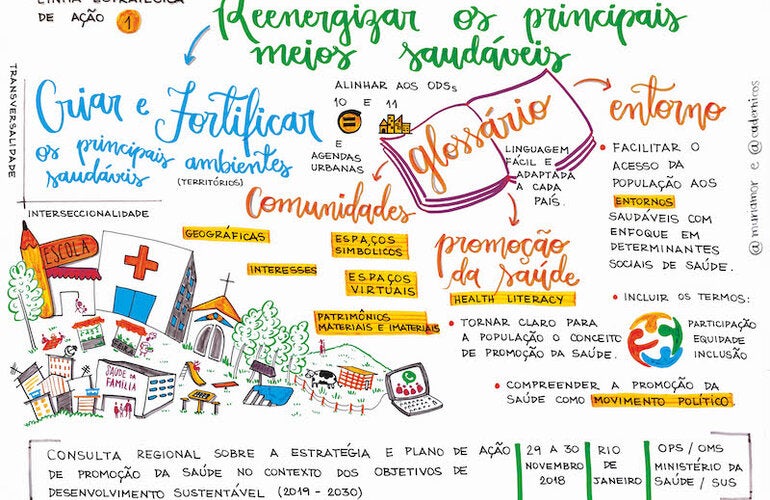 LINHA ESTRATÉGICA
DE AÇÃO 1
Reenergizar os principais
meios saudáveis
TRANSVERSALIDADE
INTERSECCIONALIDADE
Criar e Fortificar
os principais ambientes
saudáveis
(TERRITÓRIOS)
ALINHAR AOS ODSs
10 E 11
E
AGENDAS
URBANAS
glossário
LINGUAGEM
FÁCIL E
ADAPTADA
A CADA
PAÍS.
entorno
• FACILITAR O
ACESSO DA
POPULAÇÃO AOS
ENTORNOS
SAUDÁVEIS COM
ENFOQUE EM
DETERMINANTES
SOCIAIS DE SAÚDE.
• INCLUIR OS TERMOS:
PARTICIPAÇÃO
EQUIDADE
INCLUSÃO
Comunidades
GEOGRÁFICAS
ESPAÇOS
SIMBÓLICOS
INTERESSES
ESPAÇOS
VIRTUAIS
PATRIMÔNIOS
MATERIAIS E IMATERIAIS
promoção
da saúde
HEALTH LITERACY
• TORNAR CLARO PARA
A POPULAÇÃO O CONCEITO
DE PROMOÇÃO DA SAÚDE.
• COMPREENDER A PROMOÇÃO DA
SAÚDE COMO MOVIMENTO POLÍTICO
ESCOLA
SAÚDE DA
FAMÍLIA
CONSULTA REGIONAL SOBRE A ESTRATÉGIA E PLANO DE AÇÃO
DE PROMOÇÃO DA SAÚDE NO CONTEXTO DOS OBJETIVOS DE
DESENVOLVIMENTO SUSTENTÁVEL (2019 - 2030)
29 A 30
NOVEMBRO
2018
RIO
DE
JANEIRO
OPS / OMS
MINISTÉRIO DA
SAÚDE / SUS